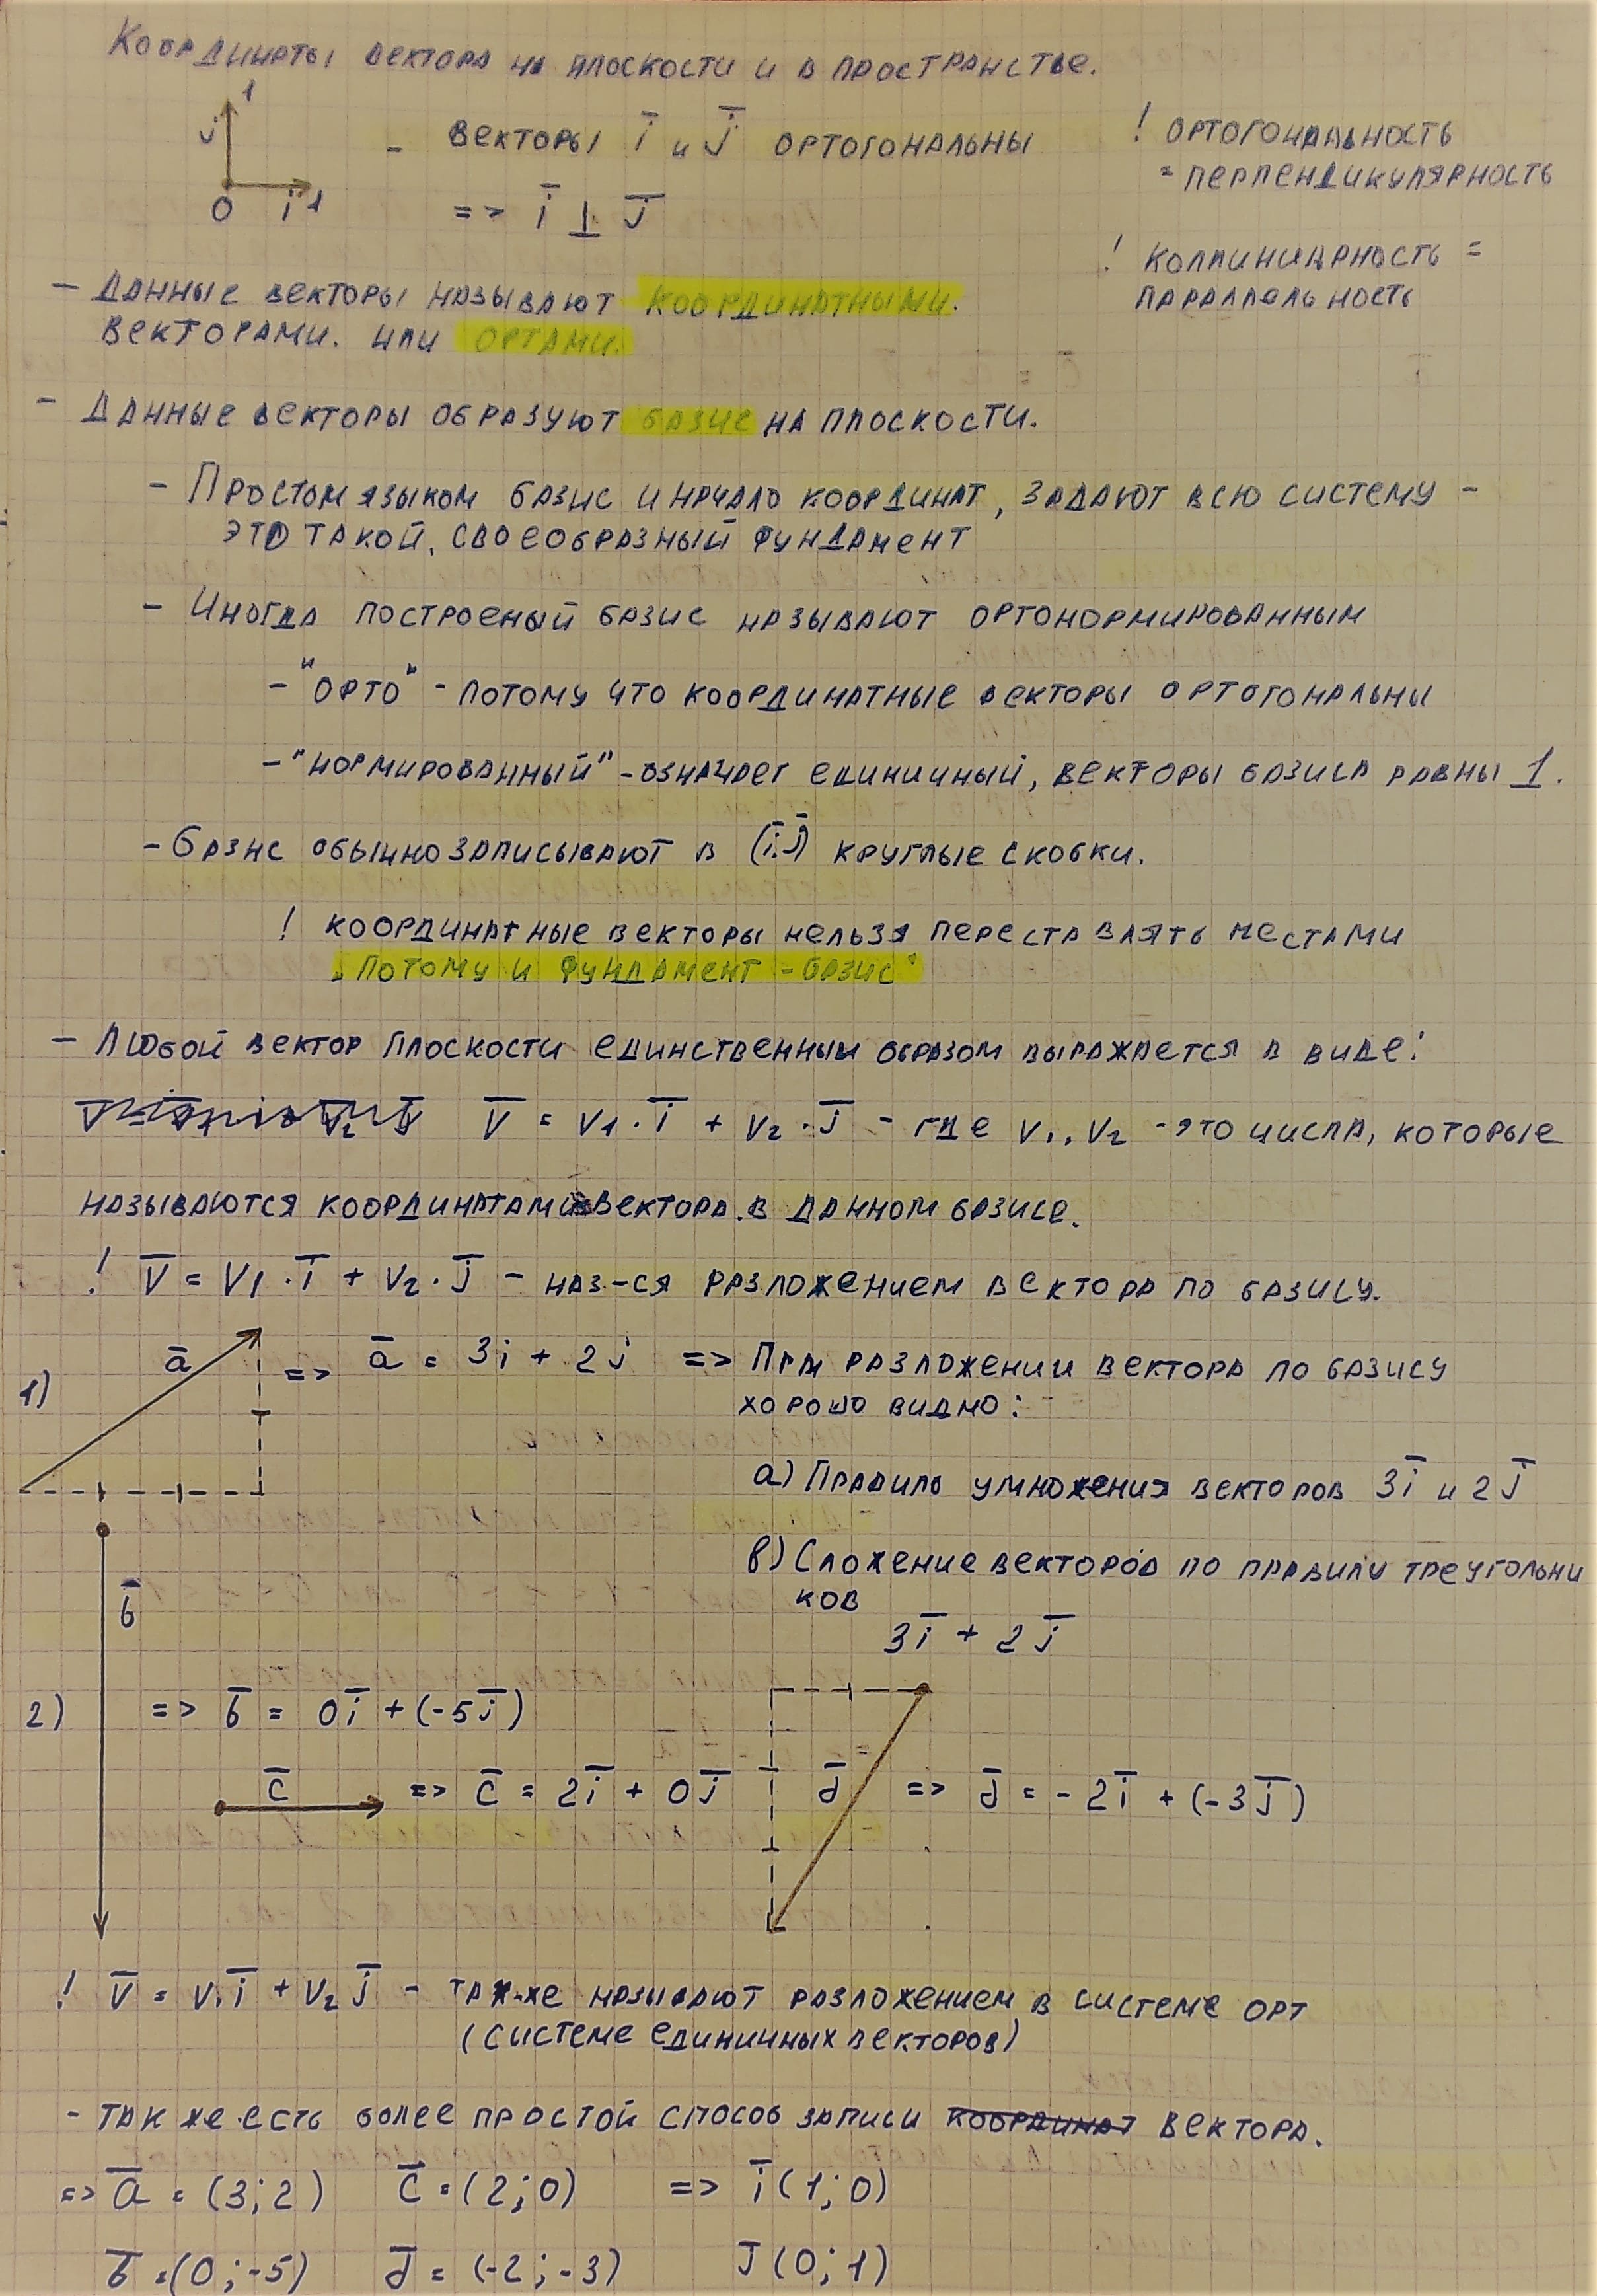 Координаты вектора на плоскости и в пространстве.
1
j
0 i 1
- векторы i̅ и j̅ ортогональны
=> i̅ ⊥ j̅
! ортогональность
= перпендикулярность
! коллиниарность =
параллельность
- Данные векторы называют координатными.
векторами. или ортами.
- Данные векторы образуют базис на плоскости.
- Простом языком базис и начало координат, задают всю систему -
это такой, своеобразный фундамент
- Иногда построеный базис называют ортонормированным
- "орто" - потому что координатные векторы ортогональны
- "нормированный" - означает единичный, векторы базиса равны 1.
- Базис обычно записывают в (i̅.j̅) круглые скобки.
! координатные векторы нельзя переставлять местами
"потому и фундамент - базис"
- Любой вектор плоскости единственным образом выражается в виде:
V̅ = V1 · i̅ + V2 · j̅ - где V1, V2 - это числа, которые
называются координатами вектора. в данном базисе.
! V̅ = V1 · i̅ + V2 · j̅ - наз-ся разложением вектора по базису.
1) a̅ => a̅ = 3i + 2j => При разложении вектора по базису
хорошо видно:
а) Правило умножения векторов 3i̅ и 2j̅
в) Сложение векторов по правилу треугольни
ков
3i̅ + 2j̅
б̅
2) => б̅ = 0i̅ + (-5j̅)
c̅ => c̅ = 2i̅ + 0j̅
д̅ => д̅ = -2i̅ + (-3j̅)
! V̅ = V1i̅ + V2j̅ - также называют разложением в системе орт
(системе единичных векторов)
- так же есть более простой способ записи координат вектора.
=> a̅ = (3;2) c̅ = (2;0) => i̅(1;0)
б̅ = (0;-5) д̅ = (-2;-3) J(0;1)